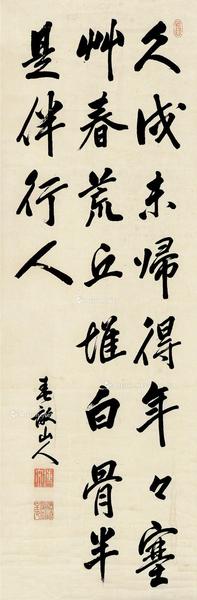 久戍未歸得年々塞
艸春荒丘堆白骨半
是伴行人
春畝山人